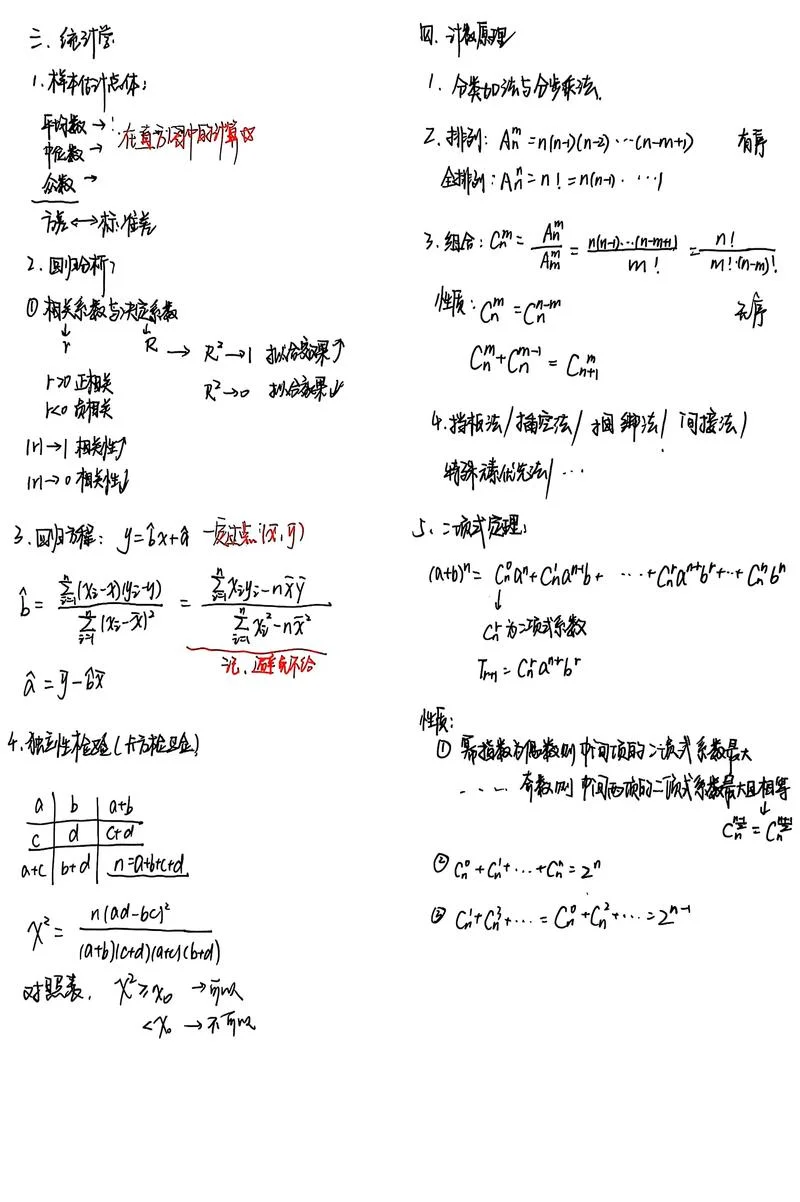 三、统计学
1、样本估计总体：
平均数 → ：在直方图中的计算☆
中位数 →
众数 →
方差 ↔ 标准差
2、回归分析
① 相关系数与决定系数
↓ ↓
r R → R²→1 拟合效果↑
r>0 正相关 R²→0 拟合效果↓
r<0 负相关
|r|→1 相关性↑
|r|→0 相关性↓
3、回归方程：y=b̂x+â 一定过点(x̄, ȳ)
b̂ = ∑ᵢ₌₁ⁿ(xᵢ-x̄)(yᵢ-ȳ) / ∑ᵢ₌₁ⁿ(xᵢ-x̄)² = ∑ᵢ₌₁ⁿxᵢyᵢ-nx̄ȳ / ∑ᵢ₌₁ⁿxᵢ²-nx̄²
记、避免不给
â = ȳ-b̂x̄
4、独立性检验(卡方检验)
a | b | a+b
c | d | c+d
a+c | b+d | n=a+b+c+d
χ² = n(ad-bc)² / (a+b)(c+d)(a+c)(b+d)
对照表， χ²≥x₀ →可以
<x₀ →不可以
四、计数原理
1、分类加法与分步乘法.
2、排列：Aₙᵐ=n(n-1)(n-2)…(n-m+1) 有序
全排列：Aₙⁿ=n!=n(n-1)…1
3、组合：Cₙᵐ= Aₙᵐ/Aₘᵐ = n(n-1)…(n-m+1)/m! = n!/m!·(n-m)!
性质：Cₙᵐ=Cₙⁿ⁻ᵐ 无序
Cₙᵐ+Cₙᵐ⁻¹=Cₙ₊₁ᵐ
4、挡板法/插空法/捆绑法/间接法/
特殊元素优先法/…
5、二项式定理：
(a+b)ⁿ= Cₙ⁰aⁿ+Cₙ¹aⁿ⁻¹b+ …+Cₙʳaⁿ⁻ʳbʳ+…+Cₙⁿbⁿ
↓
Cₙʳ为二项式系数
Tᵣ₊₁=Cₙʳaⁿ⁻ʳbʳ
性质：
① 幂指数为偶数则中间项的二项式系数最大
…… 奇数则中间两项的二项式系数最大且相等
↓
② Cₙ⁰+Cₙ¹+…+Cₙⁿ=2ⁿ
③ Cₙ¹+Cₙ³+…=Cₙ⁰+Cₙ²+…=2ⁿ⁻¹